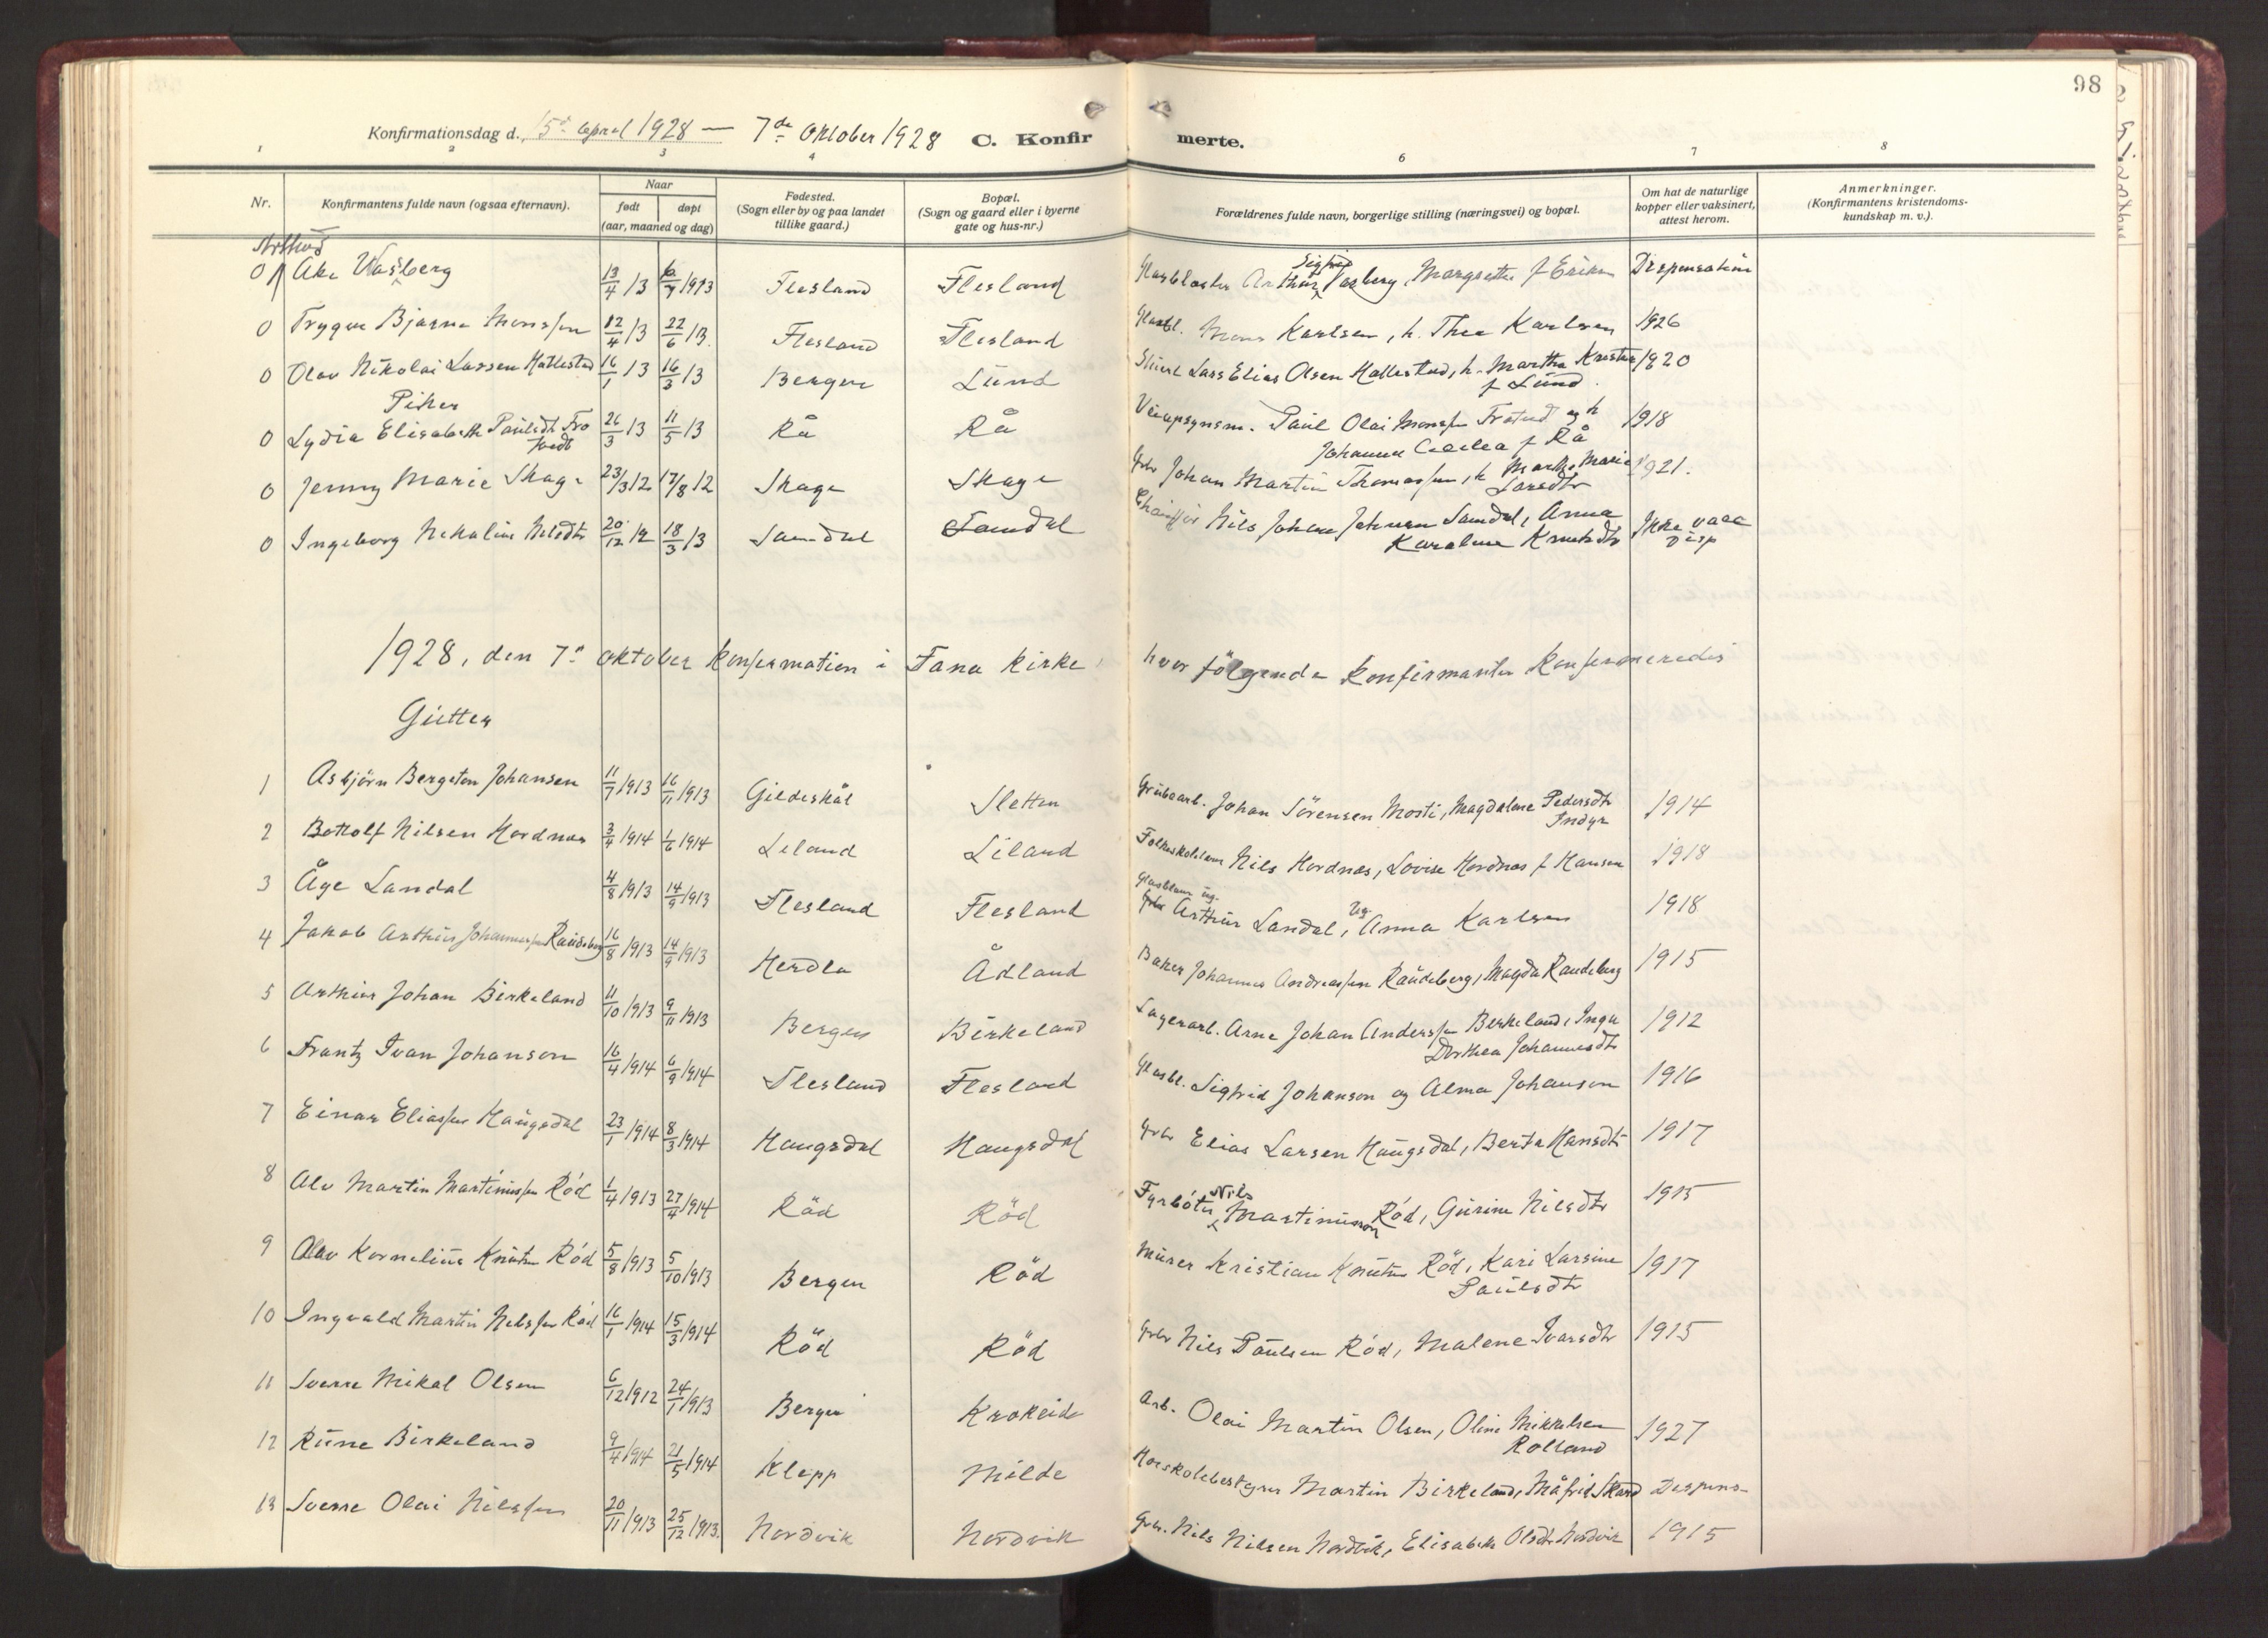 98
Konfirmationsdag d. 15de April 1928 — 7de Oktober 1928 C. Konfirmerte.
1 2 3 4 6 7 8
Nr. Konfirmantens fulde navn (ogsaa efternavn). Naar født døpt (aar, maaned og dag) Fødested. (Sogn eller by og paa landet tillike gaard.) Bopæl. (Sogn og gaard eller i byerne gate og hus-nr.) Forældrenes fulde navn, borgerlige stilling (næringsvei) og bopæl. Om hat de naturlige kopper eller vaksinert, attest herom. Anmerkninger. (Konfirmantens kristendoms-kundskap m. v.).
0 Åke Wasberg 13/4 13 /1913 Flesland Flesland Arthur Sigfrid Vasberg, Margrethe f Erikson Dispensation
0 Trygve Bjarne Monssen 12/4 13 22/6 13. Flesland Flesland Glasbl. Mons Karlsen, h. Thea Karlsen 1926
0 Olav Nikolai Larsen Hallestad 16/1 13 16/3 13 Bergen Lund Lars Elias Olsen Hallestad, h. Martha f Lund 1920
Piker
0 Lydia Elisabeth Paulsdtr 26/3 13 11/5 13 Rå Rå Veiopsynsm. Paul Olai Monssen og h Johanna Cecilia f Rå 1918
0 Jenny Marie Skage 23/3 12 17/8 12 Skage Skage Gbr Johan Martin Thomassen, h Marthe Marie Larsdtr 1921.
0 Ingeborg Nikoline Nilsdtr 20/12 12 18/3 13 Samdal Samdal Chauffør Nils Johan Johnsen Samdal, Anna Karoline Knutsdtr Ikke vacc Disp
1928, den 7de oktober konfirmation i Fana kirke, hvor følgende konfirmanter konfirmeredes
Gutter
1 Asbjörn Bergeton Johansen 11/7 1913 16/11 1913 Gildeskål Sletten Grubearb. Johan Sörensen Mosti, Magdalene Pedersdtr Indyr 1914
2 Bottolf Nilsen Hordnes 3/4 1914 1/6 1914 Liland Liland Nils Hordnes, Lovise Hordnes f Hansen 1918
3 Åge Sandal 4/8 1913 14/9 1913 Flesland Flesland Arthur Sandal, Ug. Anna Karlsen 1918
4 Jakob Arthur Johannessen Raudeberg 16/8 1913 14/9 1913 Herdla Ådland Baker Johannes Andreassen Raudeberg, Magda Raudeberg 1915
5 Arthur Johan Birkeland 11/10 1913 9/11 1913 Bergen Birkeland Lagerarb. Arne Johan Anderssen Berkeland, Inga Dorthea Johannesdtr 1912
6 Frantz Ivan Johanson 16/4 1914 6/9 1914 Flesland Flesland Glasbl. Sigfrid Johanson og Alma Johanson 1916
7 Einar Eliassen Haugsdal 23/1 1914 8/3 1914 Haugsdal Haugsdal Gbr Elias Larsen Haugsdal, Berta Hansdtr 1917
8 Alv Martin Martinussen Röd 1/4 1913 27/4 1914 Röd Röd Fyrböter Nils Martinusson Röd, Gurine Nilsdtr 1915
9 Olav Kornelius Knutsen Röd 5/8 1913 5/10 1913 Bergen Röd Murer Kristian Knutsen Röd, Kari Larsine Paulsdtr 1917
10 Ingvald Martin Nilssen Röd 16/1 1914 15/3 1914 Röd Röd Gbr Nils Paulsen Röd, Malene Ivarsdtr 1915
11 Sverre Mikal Olsen 6/12 1912 24/1 1913 Bergen Krokeide Arb. Olai Martin Olsen, Oline Mikkelsen Rolland 1927
12 Rune Birkeland 9/4 1914 21/5 1914 Klepp Milde Martin Birkeland, Måfrid Skard Dispens-
13 Sverre Olai Nilssen 20/11 1913 25/12 1913. Nordvik Nordvik Gbr. Nils Nilsen Nordvik, Elisabeth Olsdtr Nordvik 1915